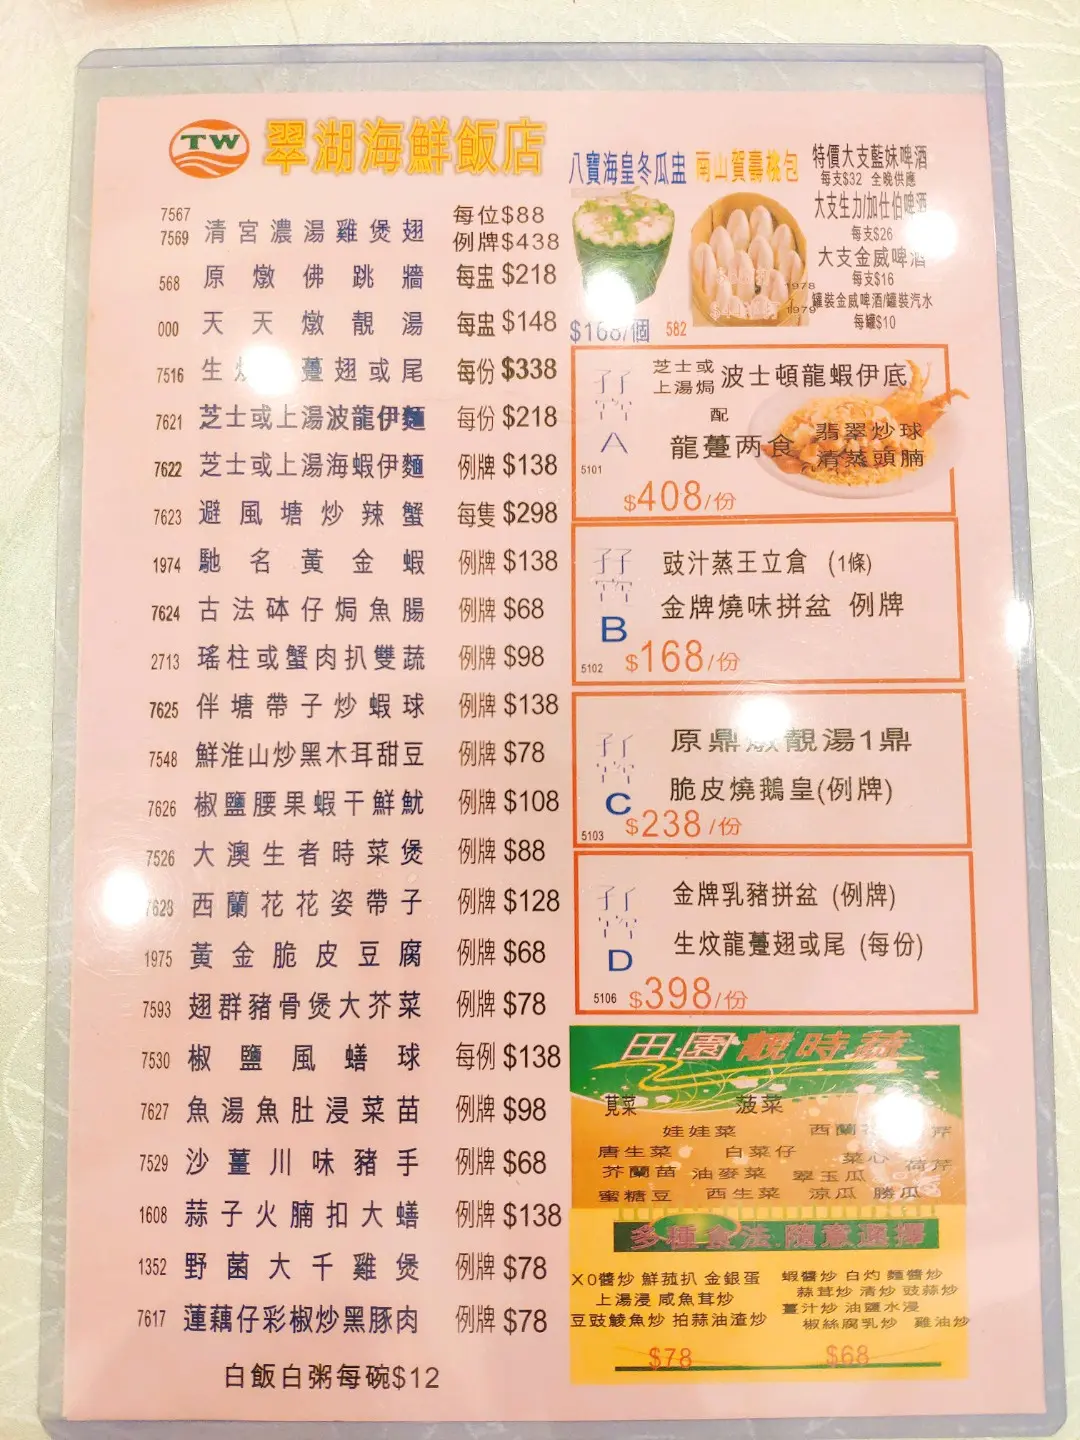 TW 翠湖海鮮飯店
7567
7569 清宮濃湯雞煲翅 每位$88
例牌$438
568 原燉佛跳牆 每盅 $218
000 天天燉靚湯 每盅 $148
7516 生 躉翅或尾 每份 $338
7621 芝士或上湯波龍伊麵 每份 $218
7622 芝士或上湯海蝦伊麵 例牌 $138
7623 避風塘炒辣蟹 每隻 $298
1974 馳名黃金蝦 例牌 $138
7624 古法砵仔焗魚腸 例牌 $68
2713 瑤柱或蟹肉扒雙蔬 例牌 $98
7625 伴塘帶子炒蝦球 例牌 $138
7548 鮮淮山炒黑木耳甜豆 例牌 $78
7626 椒鹽腰果蝦干鮮魷 例牌 $108
7526 大澳生者時菜煲 例牌 $88
7628 西蘭花花姿帶子 例牌 $128
1975 黃金脆皮豆腐 例牌 $68
7593 翅群豬骨煲大芥菜 例牌 $78
7530 椒鹽風鱔球 每例 $138
7627 魚湯魚肚浸菜苗 例牌 $98
7529 沙薑川味豬手 例牌 $68
1608 蒜子火腩扣大鱔 例牌 $138
1352 野菌大千雞煲 例牌 $78
7617 蓮藕仔彩椒炒黑豚肉 例牌 $78
白飯白粥每碗$12
八寶海皇冬瓜盅
$168/個
南山賀壽桃包
582
1978
1979
特價大支藍妹啤酒
每支$32 全晚供應
大支生力/加仕伯啤酒
每支$26
大支金威啤酒
每支$16
罐裝金威啤酒/罐裝汽水
每罐$10
A
5101
芝士或
上湯焗 波士頓龍蝦伊底
配
龍躉两食 翡翠炒球
清蒸頭腩
$408/份
B
5102
豉汁蒸王立倉 (1條)
金牌燒味拼盆 例牌
$168/份
C
5103
原鼎燉靚湯1鼎
脆皮燒鵝皇(例牌)
$238/份
D
5106
金牌乳豬拼盆 (例牌)
生炆龍躉翅或尾 (每份)
$398/份
田園靚時蔬
莧菜 菠菜
娃娃菜 西蘭
唐生菜 白菜仔 菜心
芥蘭苗 油麥菜 翠玉瓜
蜜糖豆 西生菜 涼瓜 勝瓜
多種食法 隨意選擇
XO醬炒 鮮菰扒 金銀蛋
上湯浸 咸魚茸炒
豆豉鯪魚炒 拍蒜油渣炒
$78
蝦醬炒 白灼 麵醬炒
蒜茸炒 清炒 豉蒜炒
薑汁炒 油鹽水浸
椒絲腐乳炒 雞油炒
$68